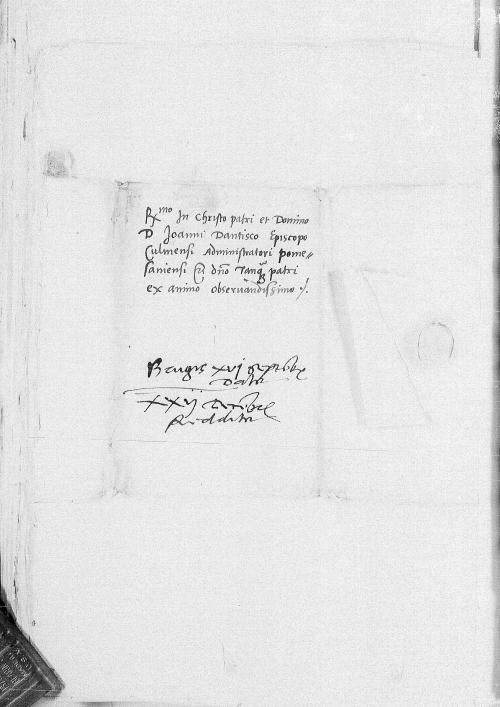 Rmo In Christo patri et Domino
D Joanni Dantisco Episcopo
Culmensi Administratori pome=
saniensi dno Tanq patri
ex animo observandissimo
Brugis xvj septembr
Datae
XXVJ
Redditae